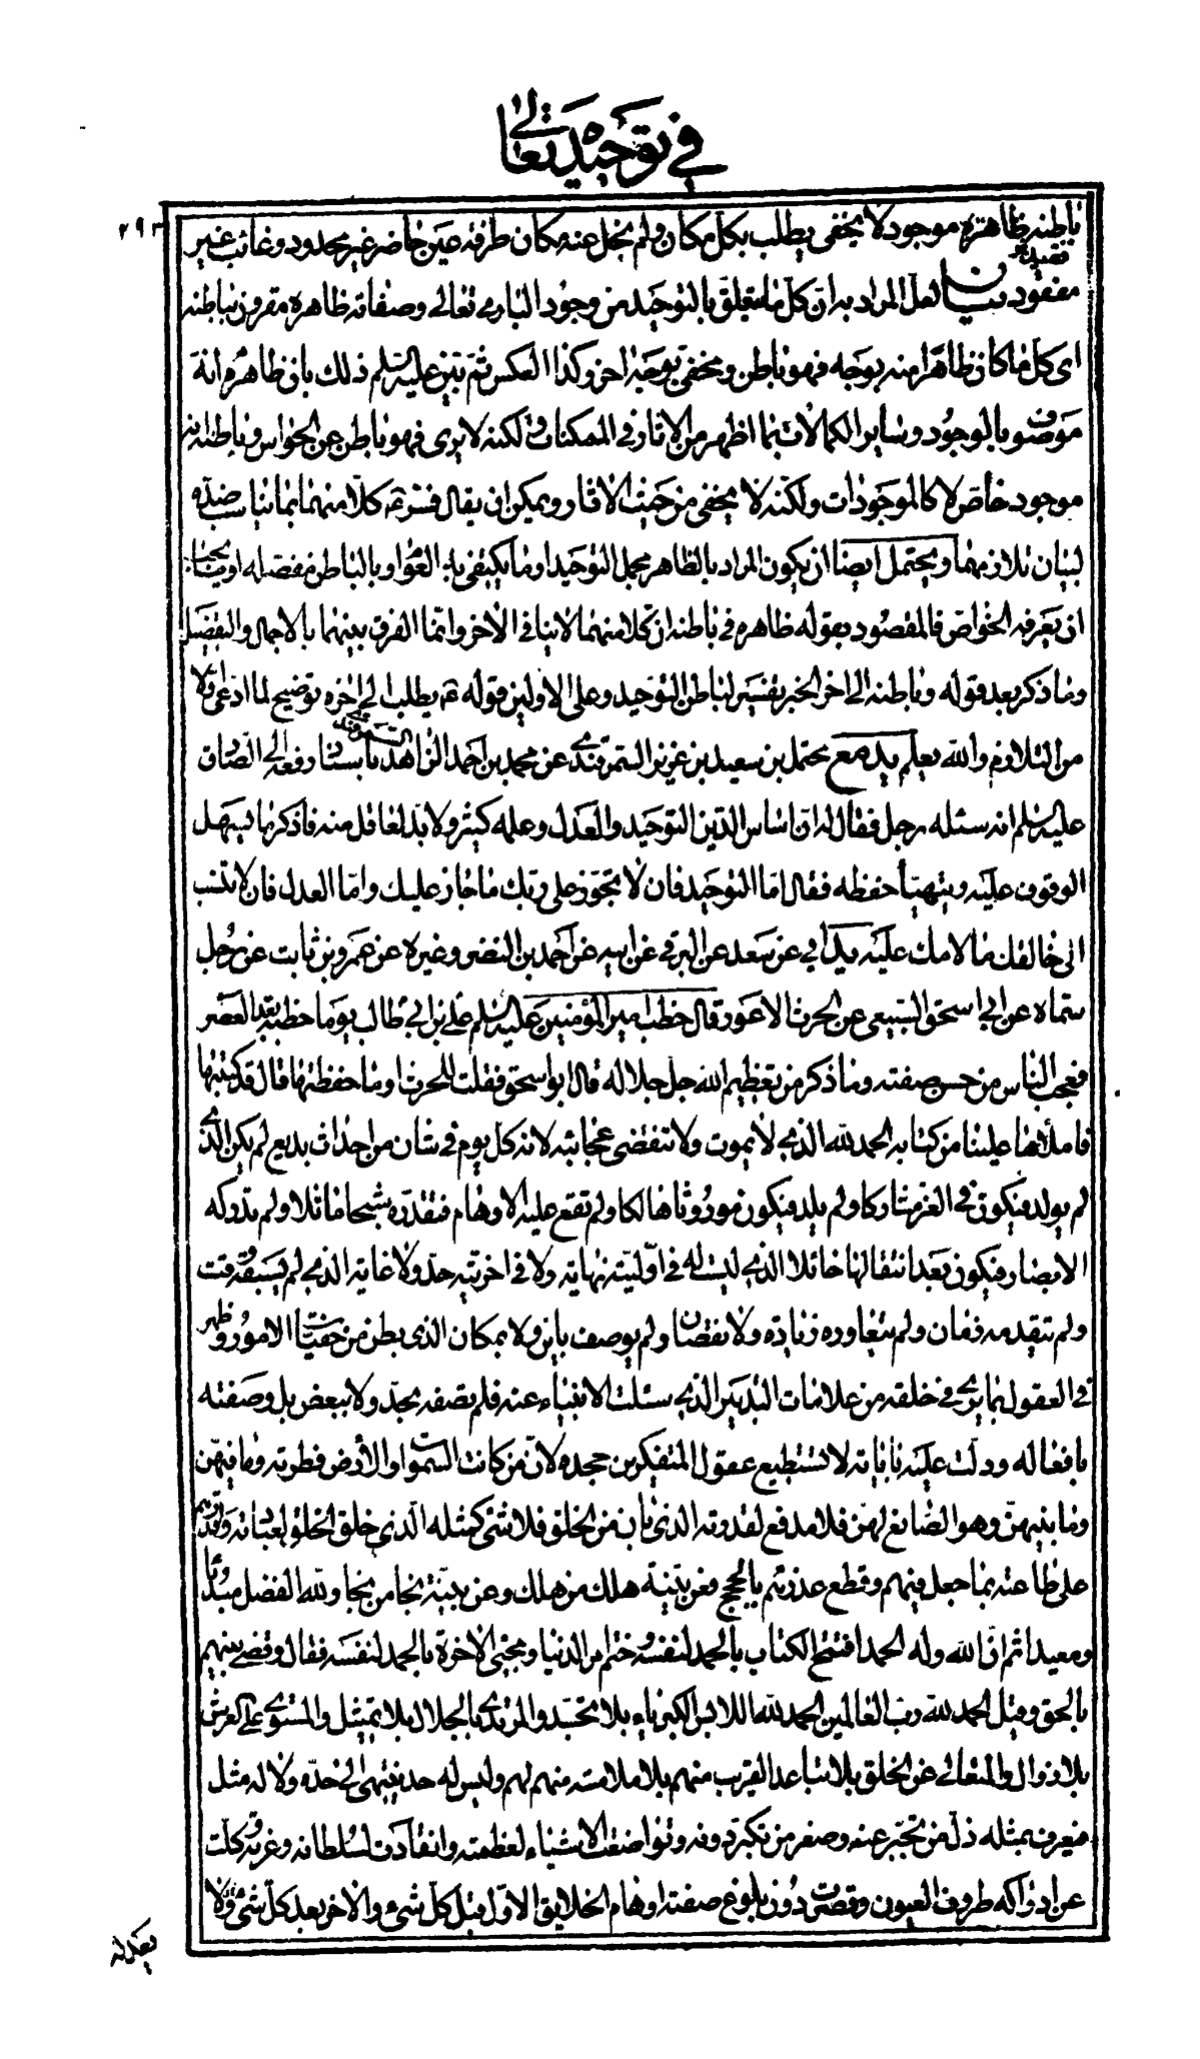 في توحيده تعالى
٢٩٣
باطنه ظاهره موجود لا يخفى يطلب بكل مكان ولم يخل عنه مكان طرفة عين حاضر غير محدود وغائب غير
مفقود بيان لعل المراد به ان كل ما يتعلق بالتوحيد من وجود الباري تعالى وصفاته ظاهره مقرون بباطنه
اي كل ما كان ظاهرا منه بوجه فهو باطن ومخفي بوجه اخر وكذا العكس ثم بين عليه السلم ذلك بان ظاهره انه
موصوف بالوجود وساير الكمالات بما اظهر من الاثار في الممكنات ولكنه لا يرى فهو باطن عن الحواس وباطنه انه
موجود خاص لا كالموجودات ولكنه لا يخفى من حيث الاثار ويمكن ان يقال فسر ع كلا منهما بما يناسب ضده
لبيان تلازمهما ويحتمل ايضا ان يكون المراد بالظاهر مجمل التوحيد وما يكتفي به العوام وبالباطن مفصله او يجب
ان يعرفه الخواص فالمقصود بقوله ظاهره في باطنه ان كلا منهما لا ينافي الاخر وانما الفرق بينهما بالاجمال والتفصيل
وما ذكر بعد قوله وباطنه الى اخر الخبر تفسير لباطن التوحيد وعلى الاولين قوله ع يطلب الى اخره توضيح لما ادعى اولا
من التلازم والله يعلم يد مع محمد بن سعيد بن عزيز السمرقندي عن محمد بن احمد الزاهد السمرقندي باسناده رفعه الى الصادق
عليه السلم انه سئله رجل فقال له ان اساس الدين التوحيد والعدل وعلمه كثير ولا بد لعاقل منه فاذكر ما يسهل
الوقوف عليه ويتهيأ حفظه فقال اما التوحيد فان لا تجوز على ربك ما جاز عليك واما العدل فان لا تنسب
الى خالقك ما لامك عليه يد ابي عن سعد عن البرقي عن ابيه عن احمد بن النضر وغيره عن عمرو بن ثابت عن رجل
سماه عن ابي اسحق السبيعي عن الحرث الاعور قال خطب امير المؤمنين عليه السلم علي بن ابي طالب يوما خطبة بعد العصر
فعجب الناس من حسن صفته وما ذكر من تعظيم الله جل جلاله قال ابو اسحق فقلت للحرث او ما حفظتها قال قد كتبتها
فاملاها علينا من كتابه الحمد لله الذي لا يموت ولا تنقضي عجائبه لانه كل يوم في شان من احداث بديع لم يكن الذي
لم يولد فيكون في العز مشاركا ولم يلد فيكون موروثا هالكا ولم تقع عليه الاوهام فتقدره شبحا ماثلا ولم تدركه
الابصار فيكون بعد انتقالها حائلا الذي ليست له في اوليته نهاية ولا في اخريته حد ولا غاية الذي لم يسبقه وقت
ولم يتقدمه زمان ولم يتعاوره زيادة ولا نقصان ولم يوصف باين ولا بمكان الذي بطن من خفيات الامور وظهر
في العقول بما يرى في خلقه من علامات التدبير الذي سئلت الانبياء عنه فلم تصفه بحد ولا ببعض بل وصفته
بافعاله ودلت عليه باياته لا تستطيع عقول المتفكرين جحده لان من كانت السموات والارض فطرته وما فيهن
وما بينهن وهو الصانع لهن فلا مدفع لقدرته الذي بان من الخلق فلا شئ كمثله الذي خلق الخلق لعبادته واقدرهم
على طاعته بما جعل فيهم وقطع عذرهم بالحجج فعن بينة هلك من هلك وعن بينة نجا من نجا ولله الفضل مبدئا
ومعيدا ثم ان الله وله الحمد افتتح الكتاب بالحمد لنفسه وختم امر الدنيا ومجئ الاخرة بالحمد لنفسه فقال وقضي بينهم
بالحق وقيل الحمد لله رب العالمين الحمد لله اللابس الكبرياء بلا تجسد والمرتدي بالجلال بلا تمثيل والمستوي على العرش
بلا زوال والمتعالي عن الخلق بلا تباعد القريب منهم بلا ملامسة منهم لهم وليس له حد ينتهى الى حده ولا له مثل
فيعرف بمثله ذل من تجبر غيره وصغر من تكبر دونه وتواضعت الاشياء لعظمته وانقادت لسلطانه وعزته وكلت
عن ادراكه طروف العيون وقصرت دون بلوغ صفته اوهام الخلايق الاول قبل كل شئ والاخر بعد كل شئ ولا
يعدله